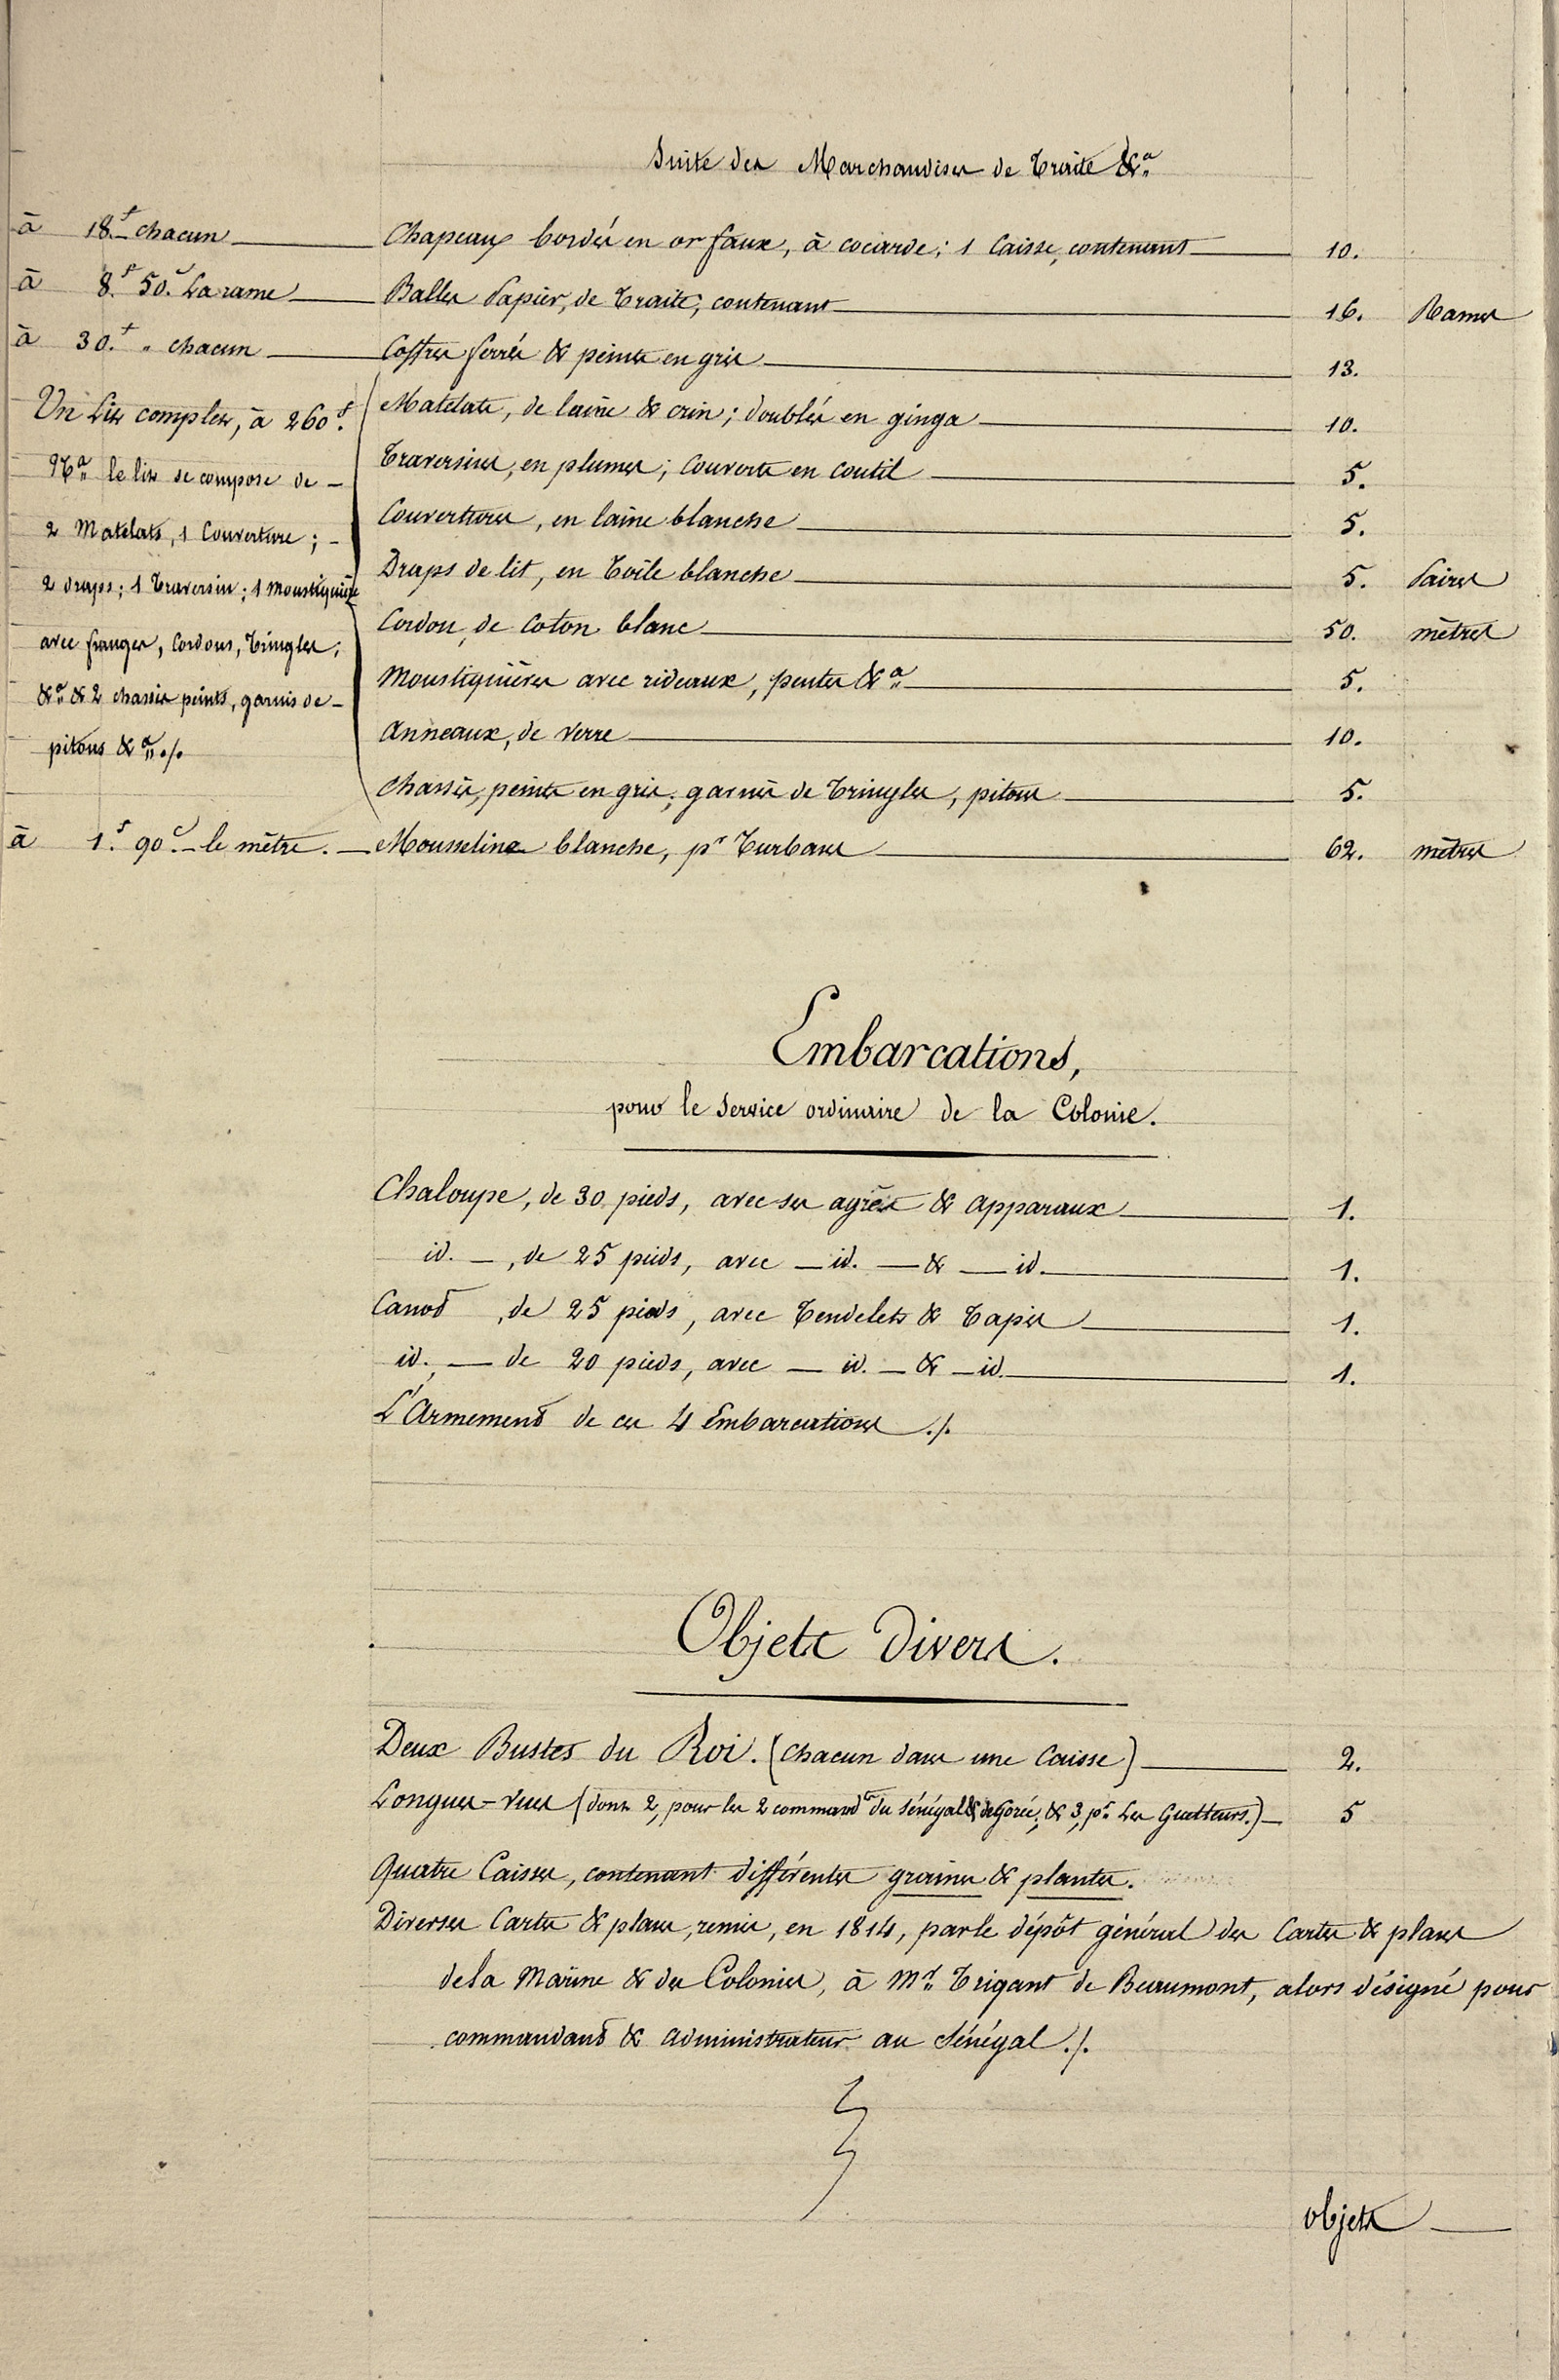 Suite des Marchandises de Traite &a.
à 18.f chacun — Chapeaux bordés en or faux, à cocarde; 1 Caisse, contenant — 10.
à 8.f 50.c La rame — Balles Papier, de Traite, contenant — 16. Rames
à 30.f " chacun — Coffres ferrés & peints en gris — 13.
Un Lit complet, à 260f. Matelats, de laine & crin; doublés en ginga — 10.
Na. le lit se compose de — Traversins, en plumes; Couverts en coutil — 5.
2 Matelats, 1 Couverture; — Couvertures, en laine blanche — 5.
2 draps; 1 Traversin; 1 Moustiquière Draps de lit, en Toile blanche — 5. Paires
avec franges, Cordons, Tringles, Cordon, de Coton blanc — 50. mètres
&a. & 2 chassis peints, garnis de — Moustiquières avec rideaux, pentes &a. — 5.
pitons &a. ./. Anneaux, de Verre — 10.
Chassis, peints en gris, garnis de Tringles, pitons — 5.
à 1.f 90.c — le mètre. — Mousseline blanche, pr Turbans — 62. mètres
Embarcations,
pour le Service ordinaire de la Colonie.
Chaloupe, de 30 pieds, avec ses agrès & apparaux — 1.
id. —, de 25 pieds, avec — id. — & — id. — 1.
Canot, de 25 pieds, avec Tendelets & Tapis — 1.
id., — de 20 pieds, avec — id. — & — id. — 1.
L'Armement de ces 4 Embarcations ./.
Objets Divers.
Deux Bustes du Roi. (Chacun dans une Caisse) — 2.
Longues-vues (dont 2, pour les 2 commandts du Sénégal & de Gorée; & 3, pr. Les Guetteurs.) — 5
Quatre Caisses, contenant différentes graines & plantes.
Diverses Cartes & plans, remis, en 1814, par le dépôt général des Cartes & plans
de la Marine & des Colonies, à Mr. Trigant de Beaumont, alors désigné pour
commandant & administrateur au Sénégal ./.
Objets —